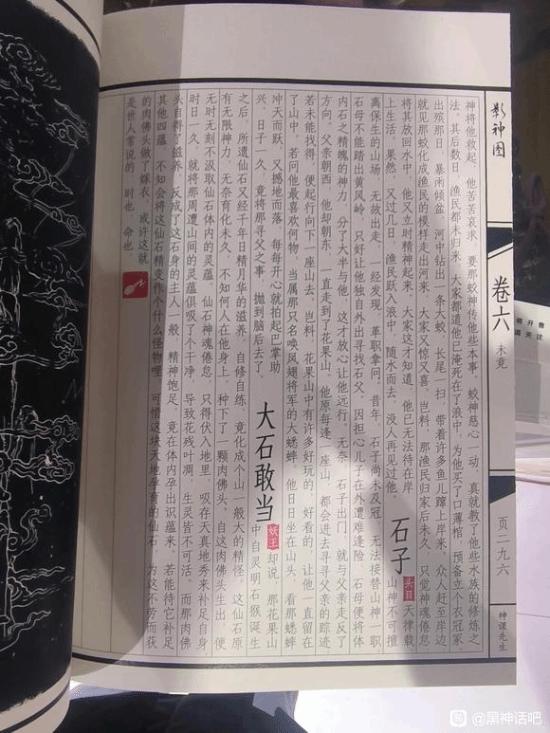 影神图
卷六
未竟
页二九六
神将他救起。他苦苦哀求，要那蛟神传他些本事，蛟神慈心一动，真就教了他些水族的修炼之
法。其后数日，渔民都未归来，大家都道他已淹死在了浪中，为他买了口薄棺，预备立个衣冠冢
出殡那日，暴雨倾盆，河中钻出一条大蛟，长尾一扫，带着许多鱼儿蹿上岸来。众人赶至岸边
就见那蛟化成渔民的模样走出河来，大家又惊又喜。岂料，那渔民归家后未久，只觉神魂倦怠
将其放回水中，他又立时精神起来，大家这才知道，他已无法待在岸
上生活。果然，又过几日，渔民跃入浪中，随水而去，没人再见过他。
石子
头目
天律载
山神不可擅
离保生的山场，无故出走，一经发现，革职拿问。昔年，石子尚未及冠，无法接替山神一职
石母不能踏出黄风岭，只好让他独自外出寻找石父。因担心儿子在外遭难逢险，石母便将体
内石之精魄的神力，分了大半与他，这才放心让他远行。无奈，石子出门，就与父亲走反了
方向，父亲朝西，他却朝东，一直走到了花果山。他原每逢一座山，都会进去寻寻父亲的踪迹
若未能找得，便起行向下一座山去。岂料，花果山中有许多好玩的、好看的，让他一直留在
了山中。若问他最喜欢何物，当属那只名唤风翅将军的大蟋蟀，他日日坐在山头，看那蟋蟀
冲天而跃，撼地而落，每每开心就拍起巴掌助
兴，日子一久，竟将那寻父之事，抛到脑后去了。
大石敢当
妖王
却说，那花果山
中自灵明石猴诞生
之后，所遗仙石又经千年日精月华的滋养，自修自炼，竟化成个山一般大的精怪。这仙石原
有无限神力，无奈育化未久，不知何人在他身上，种下了一颗肉佛头。自这肉佛头生出，便
无时无刻不汲取仙石体内的灵蕴，仙石神魂倦怠，只得伏入地里，吸存天真地秀来补足自身
时日一久，就将那周遭山间的灵蕴俱吸了个干净，导致花残叶凋，生灵皆不可活。而那肉佛
头自得了滋养，反成了这石身的主人一般，精神饱足，竟在体内孕出识蕴来。若能待它补足
其他四蕴，不知会将这仙石精变作个什么怪物哩。可惜这块天地孕育的仙石，方这不劳而获
的肉佛头做了嫁衣，或许这就
是世人常说的，时也，命也。
@黑神话吧